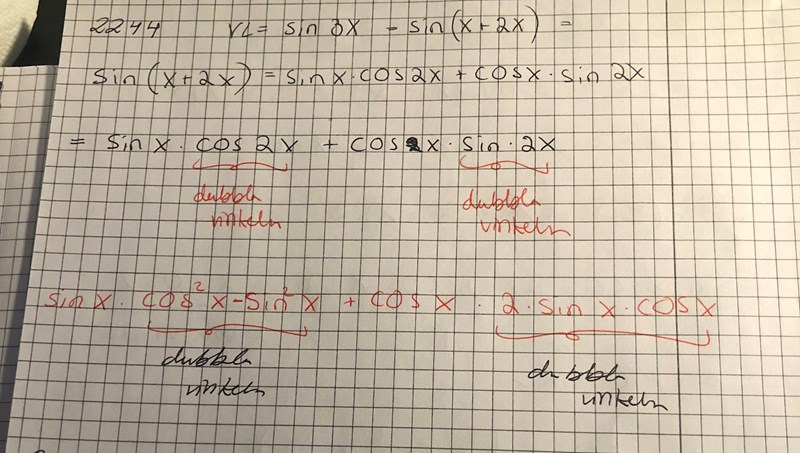 2244 VL = sin 3x - sin(x+2x) =
sin(x+2x) = sin x · cos 2x + cos x · sin 2x
= sin x · cos 2x + cos x · sin · 2x
dubbla dubbla
vinkeln vinkeln
sin x · cos² x - sin² x + cos x · 2 · sin x · cos x
dubbla dubbla
vinkeln vinkeln